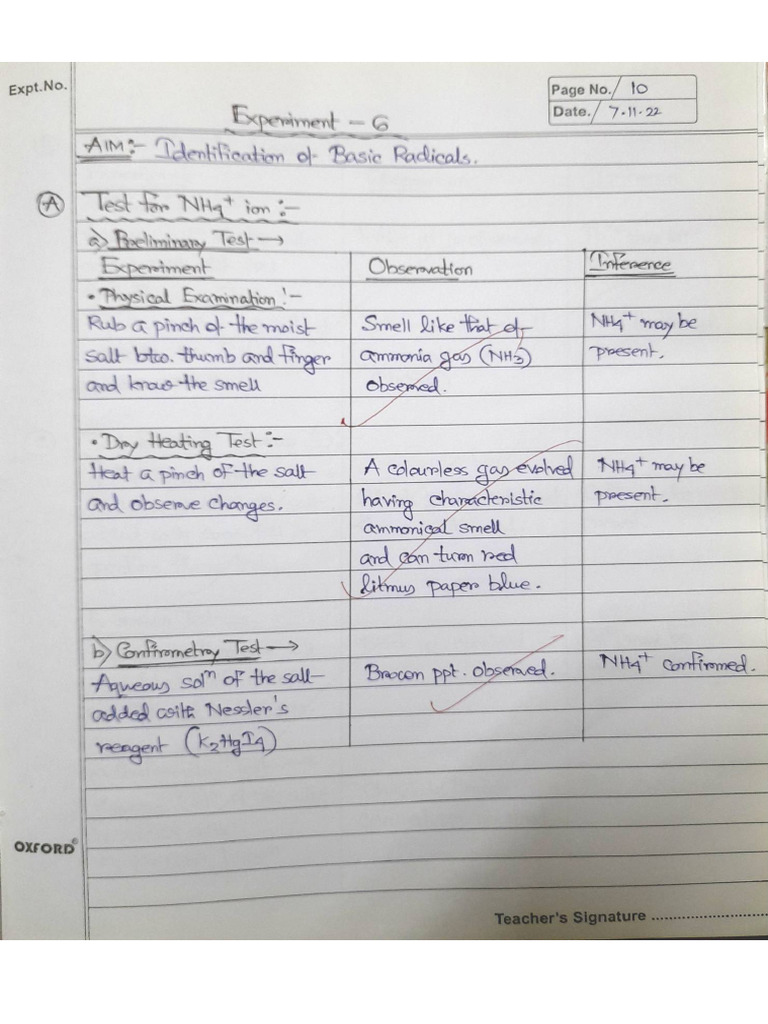 Expt.No.
Page No. 10
Date. 7.11.22
Experiment - 6
AIM:- Identification of Basic Radicals.
A Test for NH4+ ion :-
a) Preliminary Test →
Experiment Observation Inference
• Physical Examination :-
Rub a pinch of the moist Smell like that of NH4+ may be
salt btw. thumb and finger ammonia gas (NH3) present.
and know the smell observed.
• Dry Heating Test :-
Heat a pinch of the salt A colourless gas evolved NH4+ may be
and observe changes. having characteristic present.
ammonical smell
and can turn red
litmus paper blue.
b) Confirmetry Test →
Aqueous solⁿ of the salt Brown ppt. observed. NH4+ confirmed.
added with Nessler's
reagent (K2HgI4)
OXFORD
Teacher's Signature ..........................